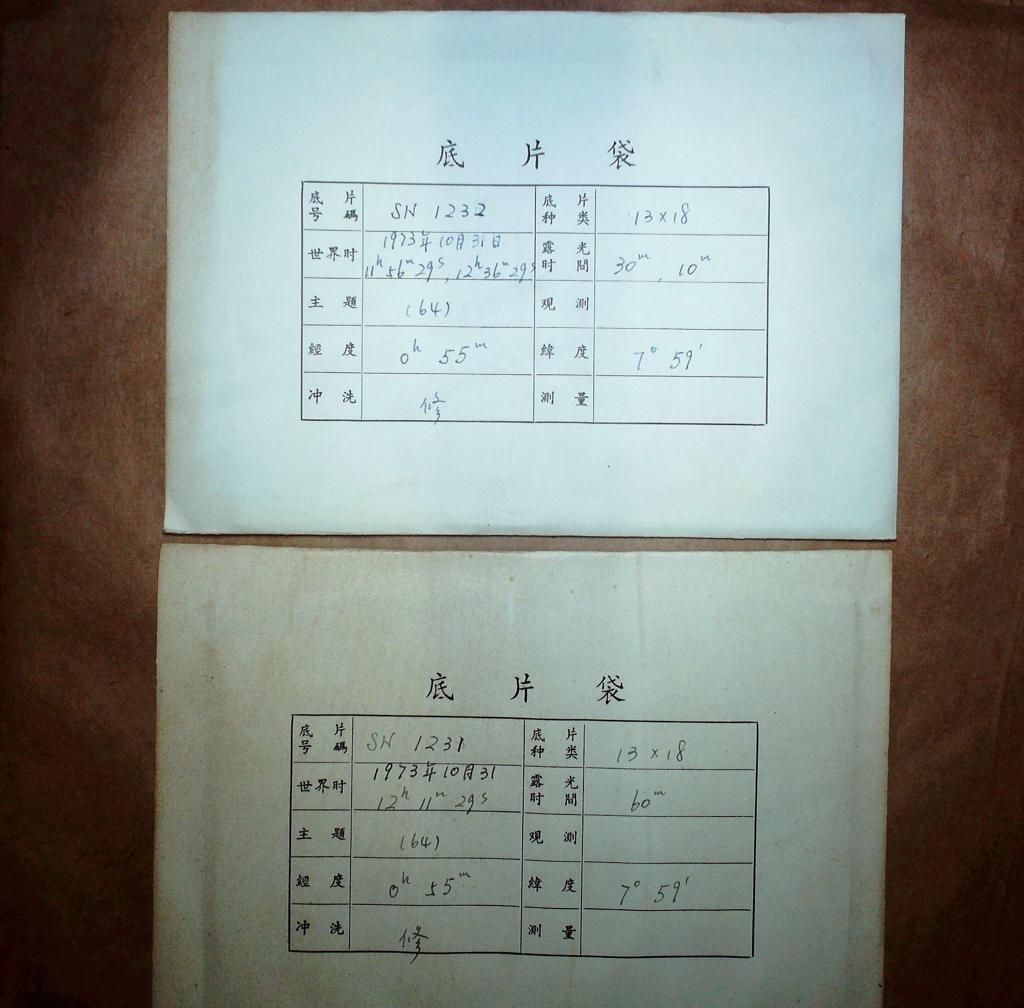 底 片 袋
底片号碼 SN 1232 底片种类 13×18
世界时 1973年10月31日 11h 56m 29s, 12h 36m 29s 露光时間 30m, 10m
主題 (64) 观測
經度 0h 55m 緯度 7° 59'
冲洗 修 測量
底 片 袋
底片号碼 SN 1231 底片种类 13×18
世界时 1973年10月31 12h 11m 29s 露光时間 60m
主題 (64) 观測
經度 0h 55m 緯度 7° 59'
冲洗 修 測量